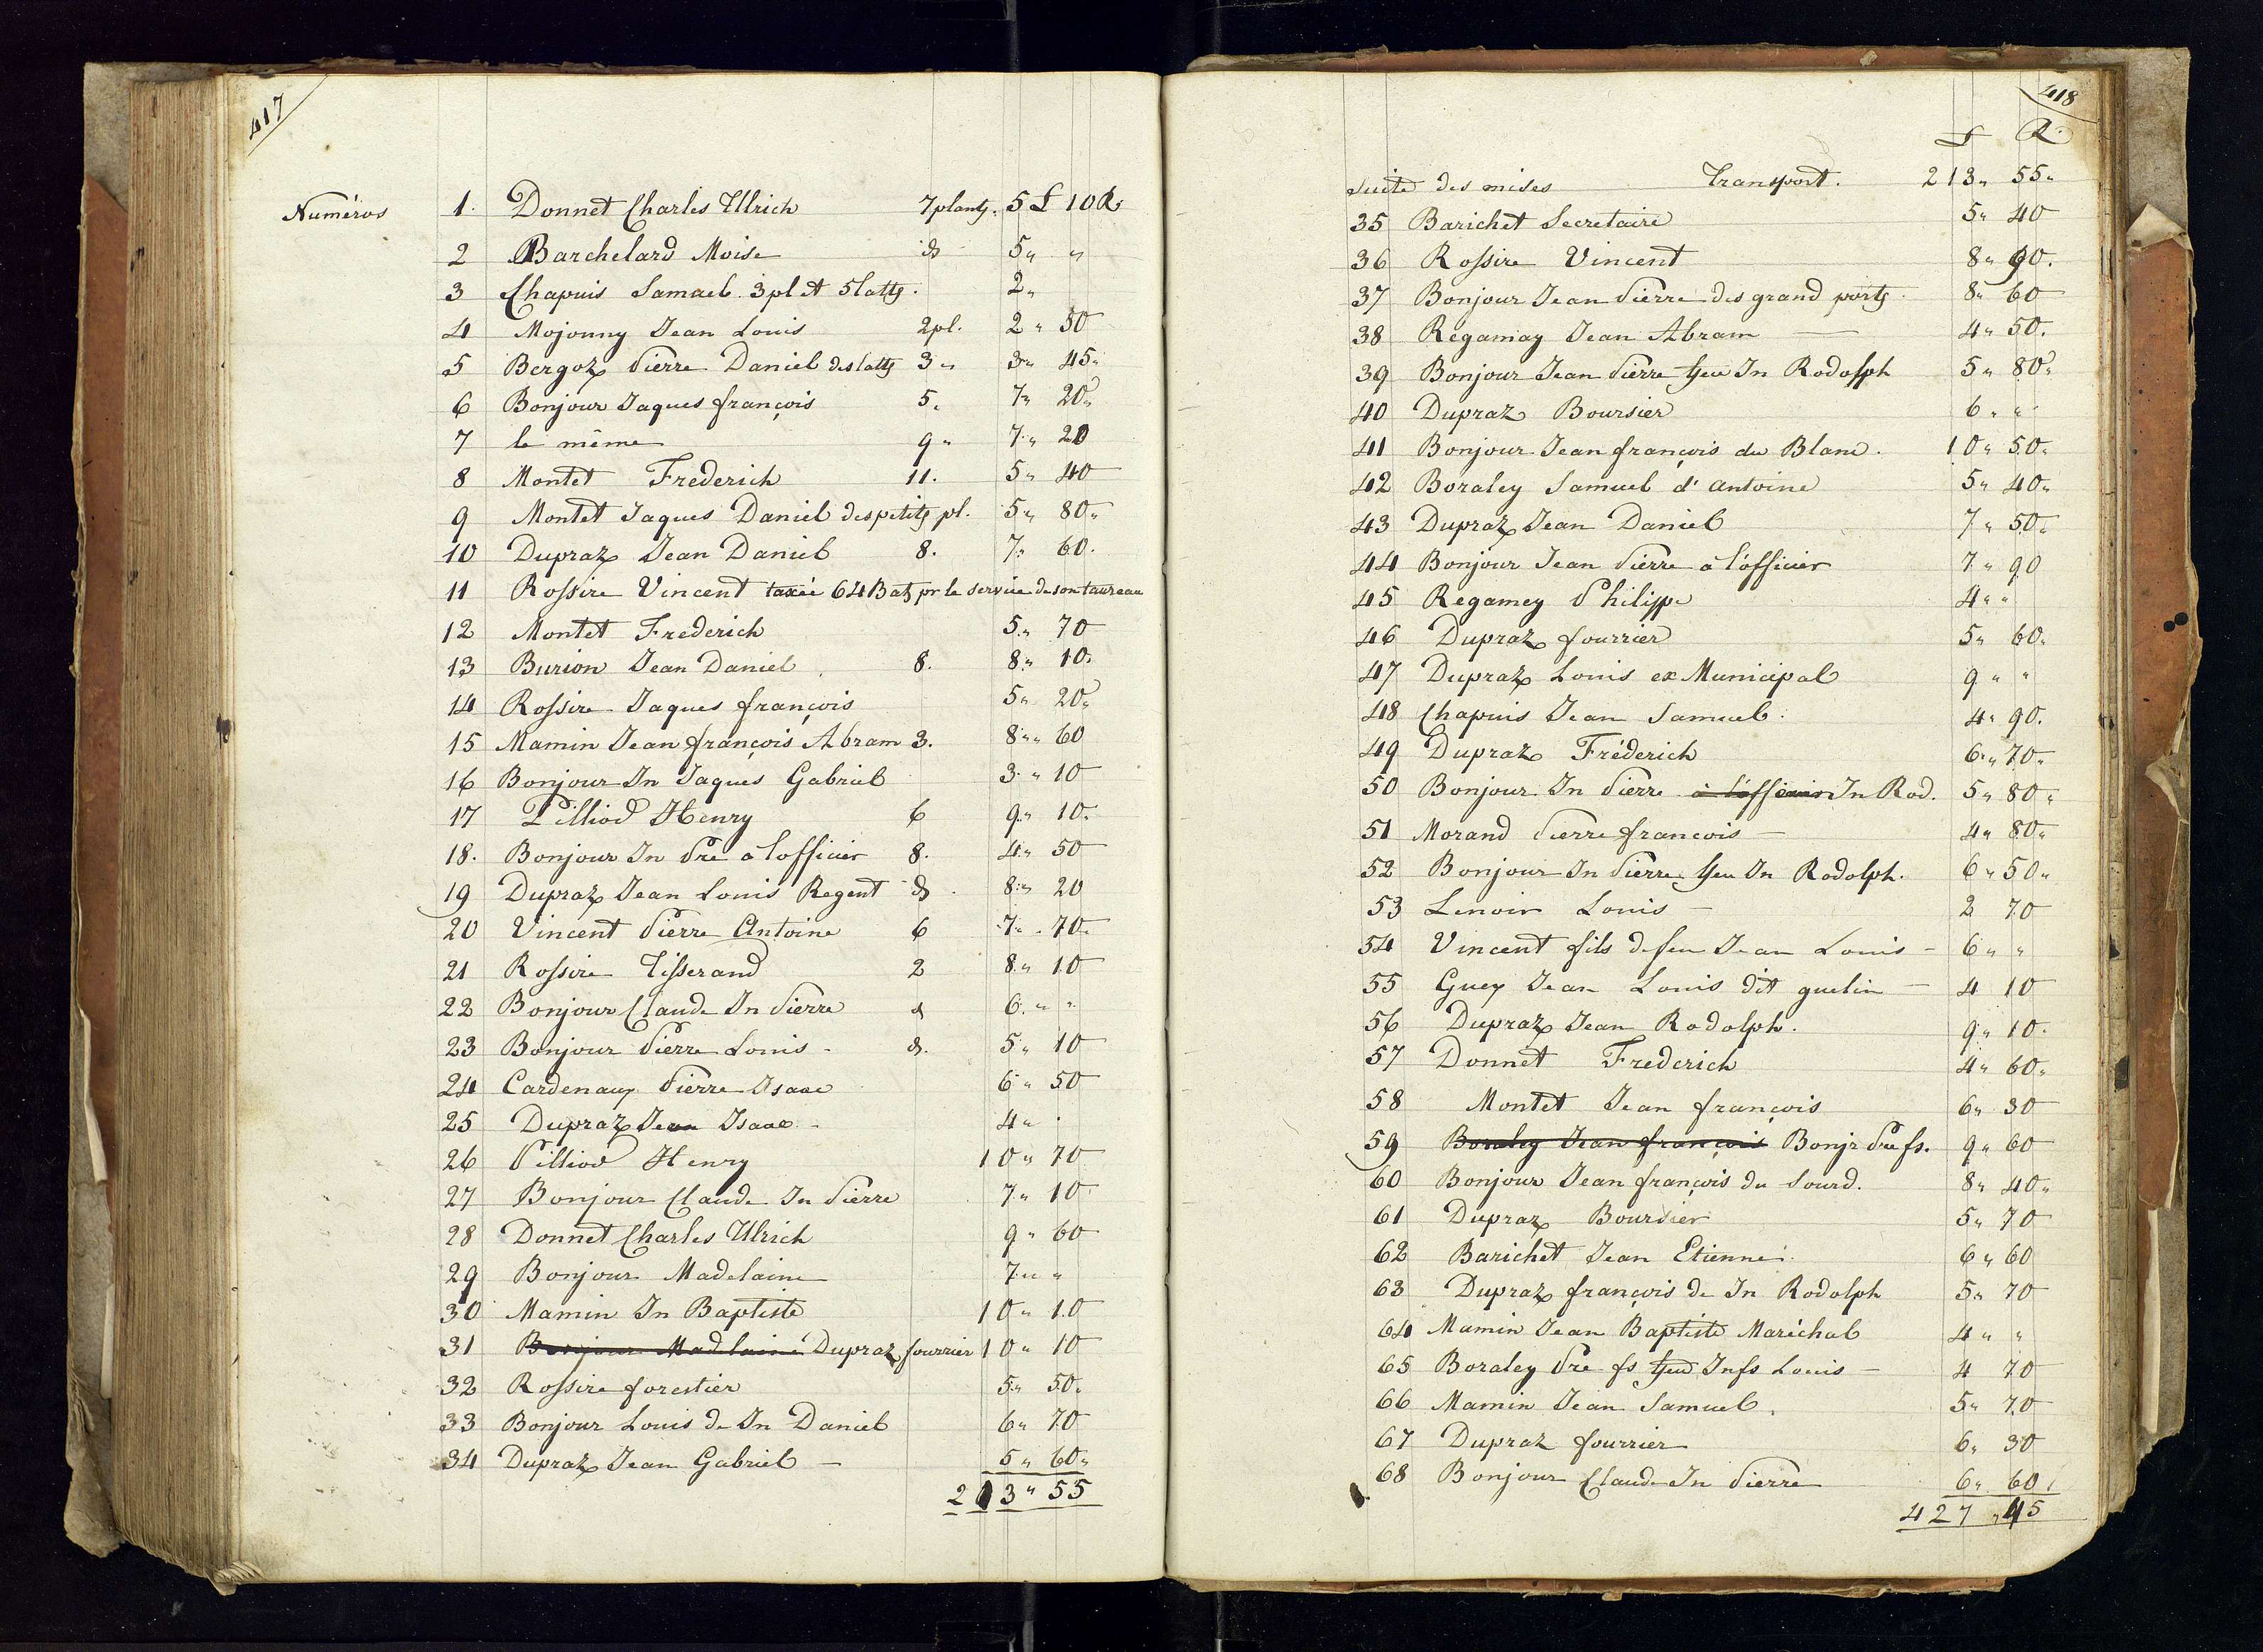 417
Numéros 1. Donnet Charles Ulrich 7 plants. 5 £ 10 R.
2 Barchelard Moïse d 5 " "
3 Chapuis Samuel 3 pl et 5 latts. 2 "
4 Mojonny Jean Louis 2 pl. 2 " 50
5 Bergoz Pierre Daniel des latts 3 " 3 " 45 "
6 Bonjour Jaques françois 5. 7 " 20 "
7 le même 9 " 7 " 20
8 Montet Frederich 11. 5 " 40
9 Montet Jaques Daniel des petits pl. 5 " 80 "
10 Dupraz Jean Daniel 8. 7 " 60.
11 Rossire Vincent taxée 64 Batz pr le service de son taureau
12 Montet Frederich 5 " 70
13 Burion Jean Daniel 8. 8 " 10.
14 Rossire Jaques françois 5 " 20 "
15 Mamin Jean françois Abram 3. 8 " 60
16 Bonjour Jn Jaques Gabriel 3 " 10
17 Pilliod Henry 6 9 " 10.
18. Bonjour Jn Pre à lofficier 8. 4 " 50
19 Dupraz Jean Louis Regent d 8 " 20
20 Vincent Pierre Antoine 6 7 " 70 "
21 Rossire Tisserand 2 8 " 10
22 Bonjour Claude Jn Pierre d 6 " "
23 Bonjour Pierre Louis - d. 5 " 10
24 Cardenaux Pierre Isaac 6 " 50
25 Dupraz Jean Isaac - 4 "
26 Pilliod Henry 10 " 70
27 Bonjour Claude Jn Pierre 7 " 10
28 Donnet Charles Ulrich 9 " 60
29 Bonjour Madelaine 7 " "
30 Mamin Jn Baptiste 10 " 10
31 Bonjour Madelaine Dupraz fourrier 10 " 10
32 Rossire forestier 5 " 50.
33 Bonjour Louis de Jn Daniel 6 " 70
34 Dupraz Jean Gabriel - 5 " 60 "
213 " 55
418
£ R.
suite des mises Transport. 213 " 55 "
35 Barichet Secretaire 5 " 40
36 Rossire Vincent 8 " 90.
37 Bonjour Jean Pierre des grand ports. 8 " 60
38 Regamay Jean Abram 4 " 50.
39 Bonjour Jean Pierre feu Jn Rodolph 5 " 80 "
40 Dupraz Boursier 6 " "
41 Bonjour Jean françois du Blanc. 10 " 50.
42 Boraley Samuel d'antoine 5 " 40 "
43 Dupraz Jean Daniel 7 " 50 "
44 Bonjour Jean Pierre à l'officier 7 " 90
45 Regamey Philippe 4 " "
46 Dupraz fourrier 5 " 60.
47 Dupraz Louis ex Municipal 9 " "
48 Chapuis Jean Samuel. 4 " 90.
49 Dupraz Fréderich 6 " 70 "
50 Bonjour Jn Pierre à l'officier Jn Rod. 5 " 80 "
51 Morand Pierre francois - 4 " 80 "
52 Bonjour Jn Pierre feu Jn Rodolph. 6 " 50 "
53 Lenoir Louis - 2 70
54 Vincent fils de feu Jean Louis - 6 " "
55 Guey Jean Louis dit guelin - 4 10
56 Dupraz Jean Rodolph. 9 " 10.
57 Donnet Frederich 4 " 60 "
58 Montet Jean françois 6 " 30
59 Boraley Jean françois Bonjr Pre fs. 9 " 60
60 Bonjour Jean françois du Sourd. 8 " 40 "
61 Dupraz Boursier 5 " 70
62 Barichet Jean Etienne. 6 " 60
63 Dupraz françois de Jn Rodolph 5 " 70
64 Mamin Jean Baptiste Maréchal 4 " "
65 Boraley Pre fs feu Jn fs Louis - 4 70
66 Mamin Jean Samuel. 5 " 70
67 Dupraz fourrier 6 " 30
68 Bonjour Claude Jn Pierre 6 " 60
427 " 45